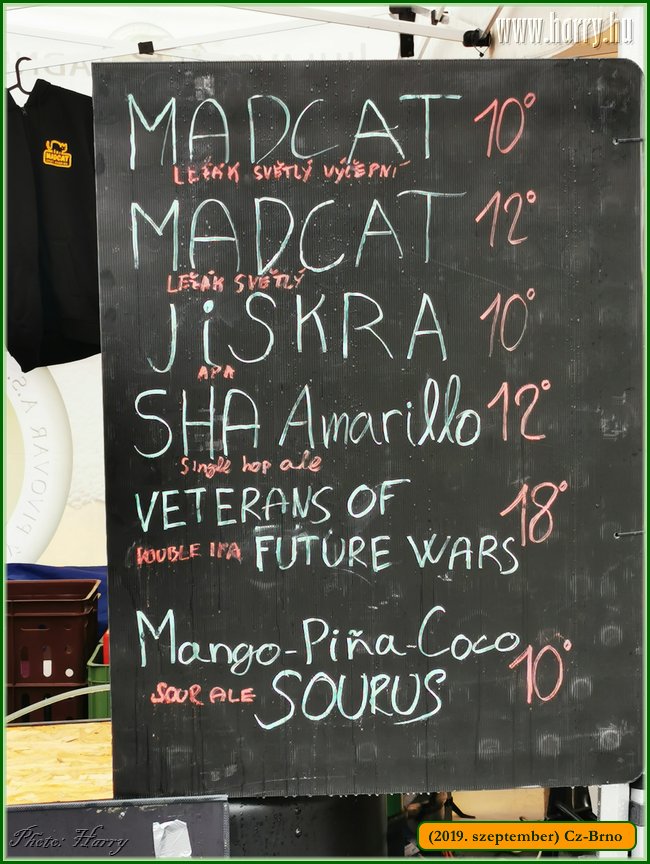 www.horry.hu
MADCAT
MADCAT 10°
LEŽÁK SVĚTLÝ VÝČEPNÍ
MADCAT 12°
LEŽÁK SVĚTLÝ
JiSKRA 10°
APA
SHA Amarillo 12°
Single hop ale
VETERANS OF 18°
DOUBLE IPA FUTURE WARS
Mango-Piña-Coco 10°
SOUR ALE SOURUS
PIVOVAR
Photo: Harry
(2019. szeptember) Cz-Brno